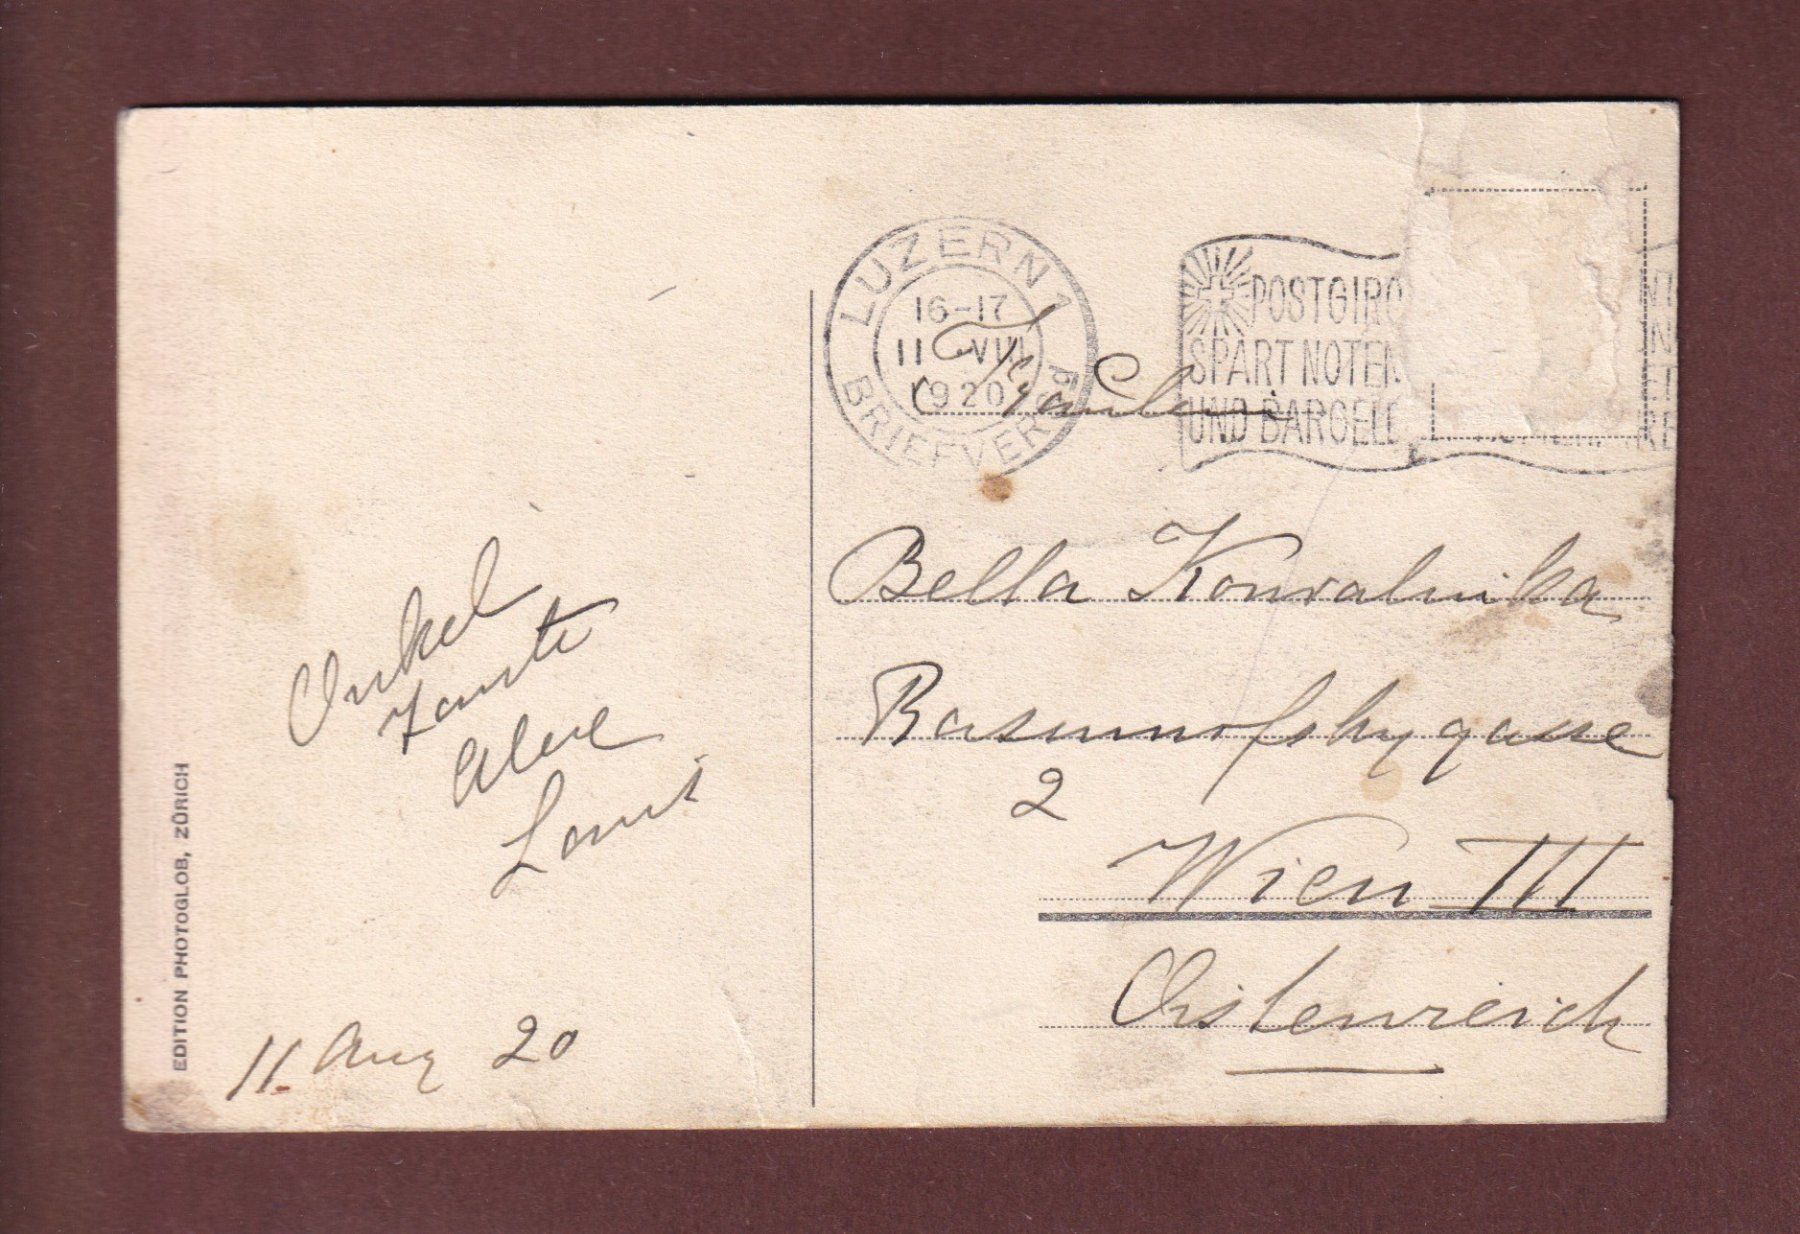 EDITION PHOTOGLOB, ZÜRICH
Onkel
Tante
Louis
11. Aug 20
LUZERN 1
16-17
11 VIII
1920
BRIEFVERS
POSTGIRO
SPART NOTEN
UND BARGELD
Fräulein
Bella Konralnika
Rasumofskygasse
2
Wien III
Östenreich